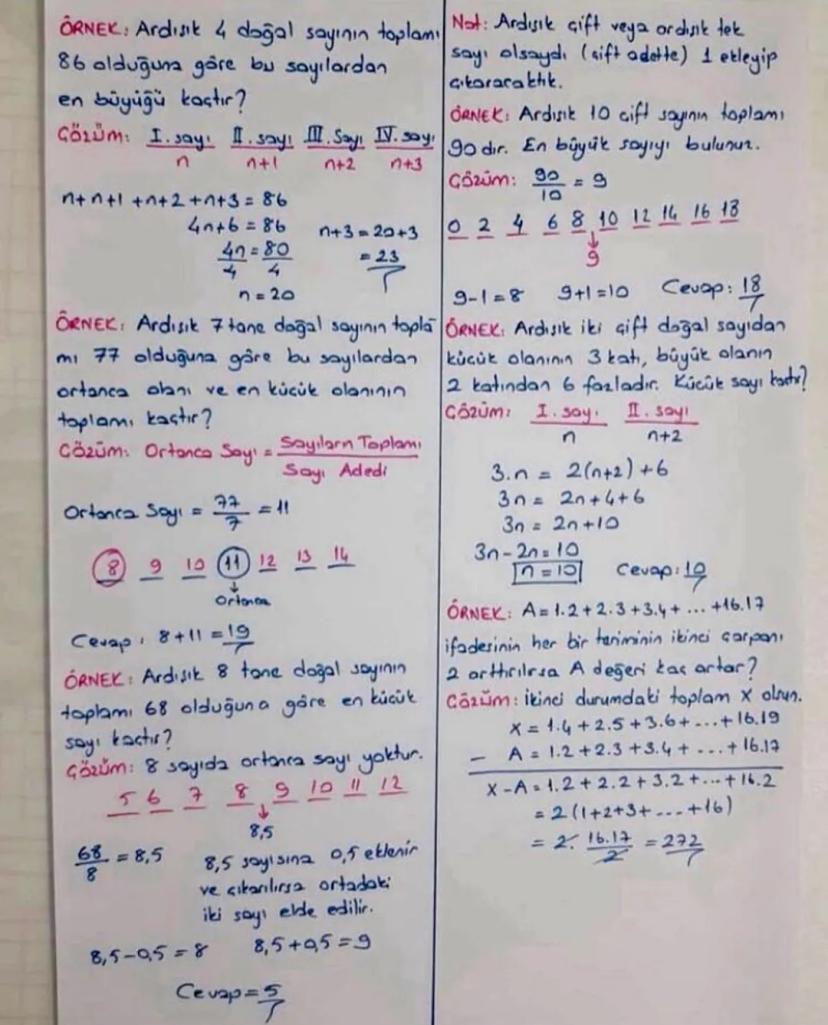 ÖRNEK: Ardışık 4 doğal sayının toplamı
86 olduğuna göre bu sayılardan
en büyüğü kaçtır?
Çözüm: I. sayı II. sayı III. Sayı IV. sayı
n n+1 n+2 n+3
n+n+1+n+2+n+3=86
4n+6=86
4n/4=80/4
n=20
n+3=20+3
=23
ÖRNEK: Ardışık 7 tane doğal sayının topla
mı 77 olduğuna göre bu sayılardan
ortanca olanı ve en küçük olanının
toplamı kaçtır?
Çözüm: Ortanca Sayı = Sayıların Toplamı / Sayı Adedi
Ortanca Sayı = 77/7 = 11
8 9 10 11 12 13 14
↓
Ortanca
Cevap: 8+11=19
ÖRNEK: Ardışık 8 tane doğal sayının
toplamı 68 olduğuna göre en küçük
sayı kaçtır?
Çözüm: 8 sayıda ortanca sayı yoktur.
5 6 7 8 9 10 11 12
↓
8,5
68/8 = 8,5
8,5 sayısına 0,5 eklenir
ve çıkarılırsa ortadaki
iki sayı elde edilir.
8,5-0,5=8 8,5+0,5=9
Cevap=5
Not: Ardışık çift veya ardışık tek
sayı olsaydı (çift adette) 1 ekleyip
çıkaracaktık.
ÖRNEK: Ardışık 10 çift sayının toplamı
90 dır. En büyük sayıyı bulunuz.
Çözüm: 90/10 = 9
0 2 4 6 8 10 12 14 16 18
↓
9
9-1=8 9+1=10 Cevap: 18
ÖRNEK: Ardışık iki çift doğal sayıdan
küçük olanının 3 katı, büyük olanın
2 katından 6 fazladır. Küçük sayı kaçtır?
Çözüm: I. sayı II. sayı
n n+2
3.n = 2(n+2)+6
3n = 2n+4+6
3n = 2n+10
3n-2n=10
n=10 Cevap: 10
ÖRNEK: A=1.2+2.3+3.4+...+16.17
ifadesinin her bir teriminin ikinci çarpanı
2 arttırılırsa A değeri kaç artar?
Çözüm: İkinci durumdaki toplam X olsun.
X=1.4+2.5+3.6+...+16.19
- A=1.2+2.3+3.4+...+16.17
X-A=1.2+2.2+3.2+...+16.2
=2(1+2+3+...+16)
=2.16.17/2=272